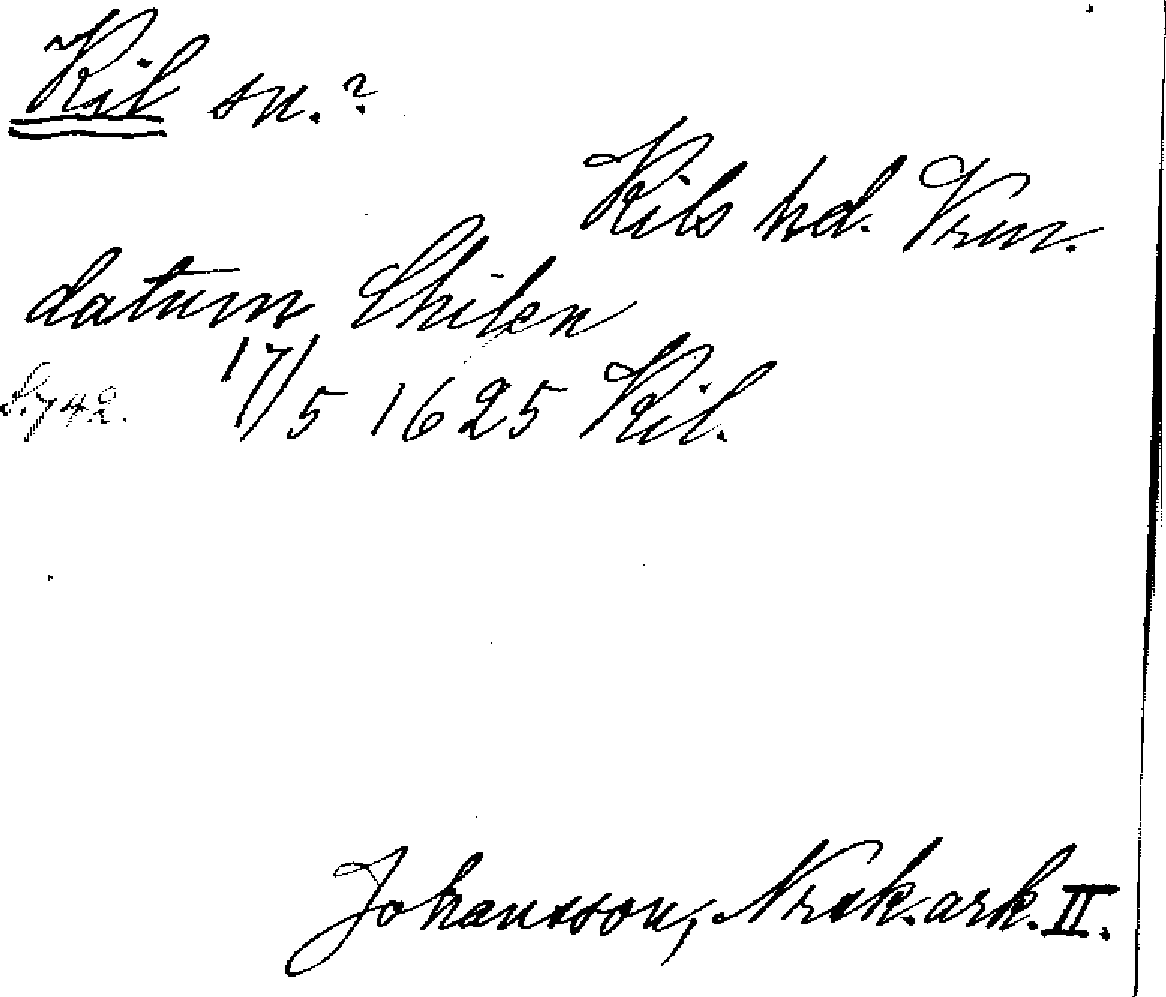 Kil sn.?
Kils hd. Vrm.
datum Chilen
S. 742. 17/5 1625 Kil.
Johansson, Nrsk. ark. II.